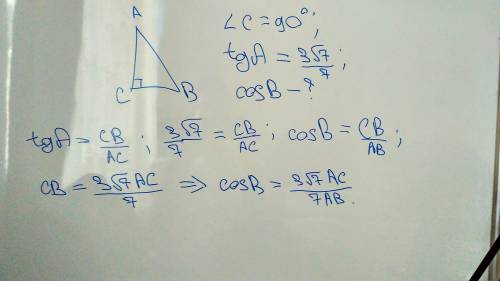 A
C
B
∠C = 90°;
tgA = 3√7/7;
cosB - ?
tgA = CB/AC; 3√7/7 = CB/AC; cosB = CB/AB;
CB = 3√7 AC/7 ⇒ cosB = 3√7 AC/7AB.